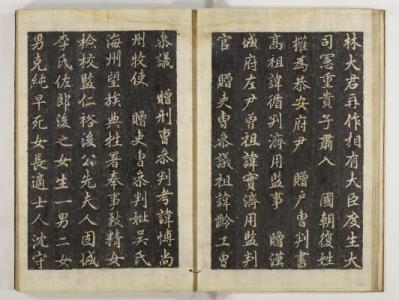 林大君再作相有大臣度生大
司憲重貴子肅入 國朝復姓
權為恭安府尹 贈戶曹判書
高祖諱循判濟用監事 贈漢
城府左尹曾祖諱實濟用監判
官 贈吏曹參議祖諱齡工曹
參議 贈刑曹參判考諱博尚
州牧使 贈吏曹參判妣吳氏
海州望族典牲署奉事毅精女
檢校監仁裕後公先夫人固城
李氏佐郎浚之女生一男二女
男克純早死女長適士人沈守